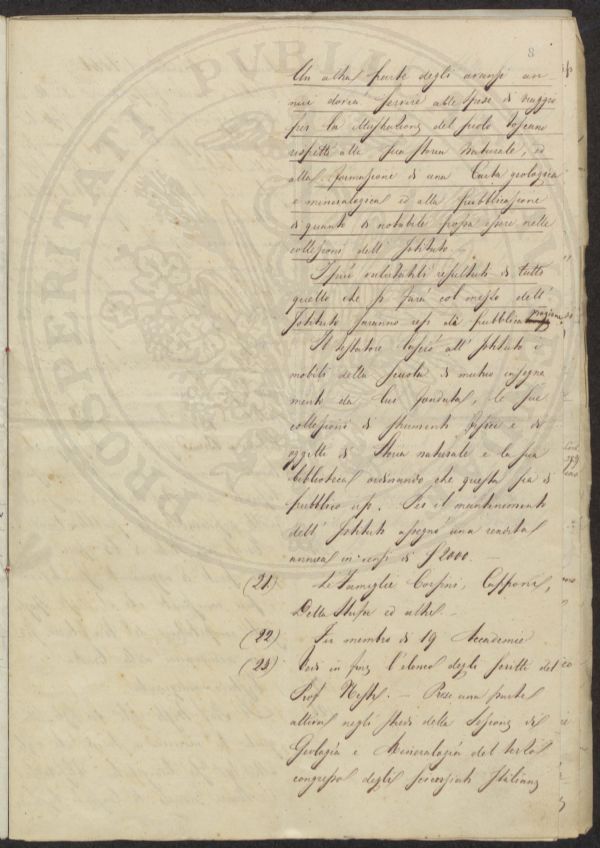 8
Un altra parte degli avanzi an
nui dovrà servire alle spese di viaggio
per la illustrazione del suolo Toscano
rispetto alla sua storia Naturale, ed
alla formazione di una Carta geologica
e mineralogica ed alla pubblicazione
di quanto di notabile possa essere nelle
collezioni dell' Istituto. —
I più valutabili resultati di tutto
quello che si farà col mezzo dell'
Istituto saranno resi di pubblica ragione.
Il testatore lasciò all' Istituto i
mobili della scuola di mutuo insegna
mento da lui fondata, le sue
collezioni di strumenti fisici e di
oggetti di Storia naturale e la sua
biblioteca ordinando che questa sia di
pubblico uso. Per il mantenimento
dell' Istituto assegnò una rendita
annua in di 2000. —
(21) Le Famiglie Corsini, Capponi,
Della Stufa ed altre —
(22) Fu membro di 19 Accademie
(23) Vedi in fine l'elenco degli scritti del
Prof Nesti. — Prese una parte
attiva negli studi della Sezione di
Geologia e Mineralogia del terzo
congresso degli scienziati Italiani
PROSPERITATI PUBLIC